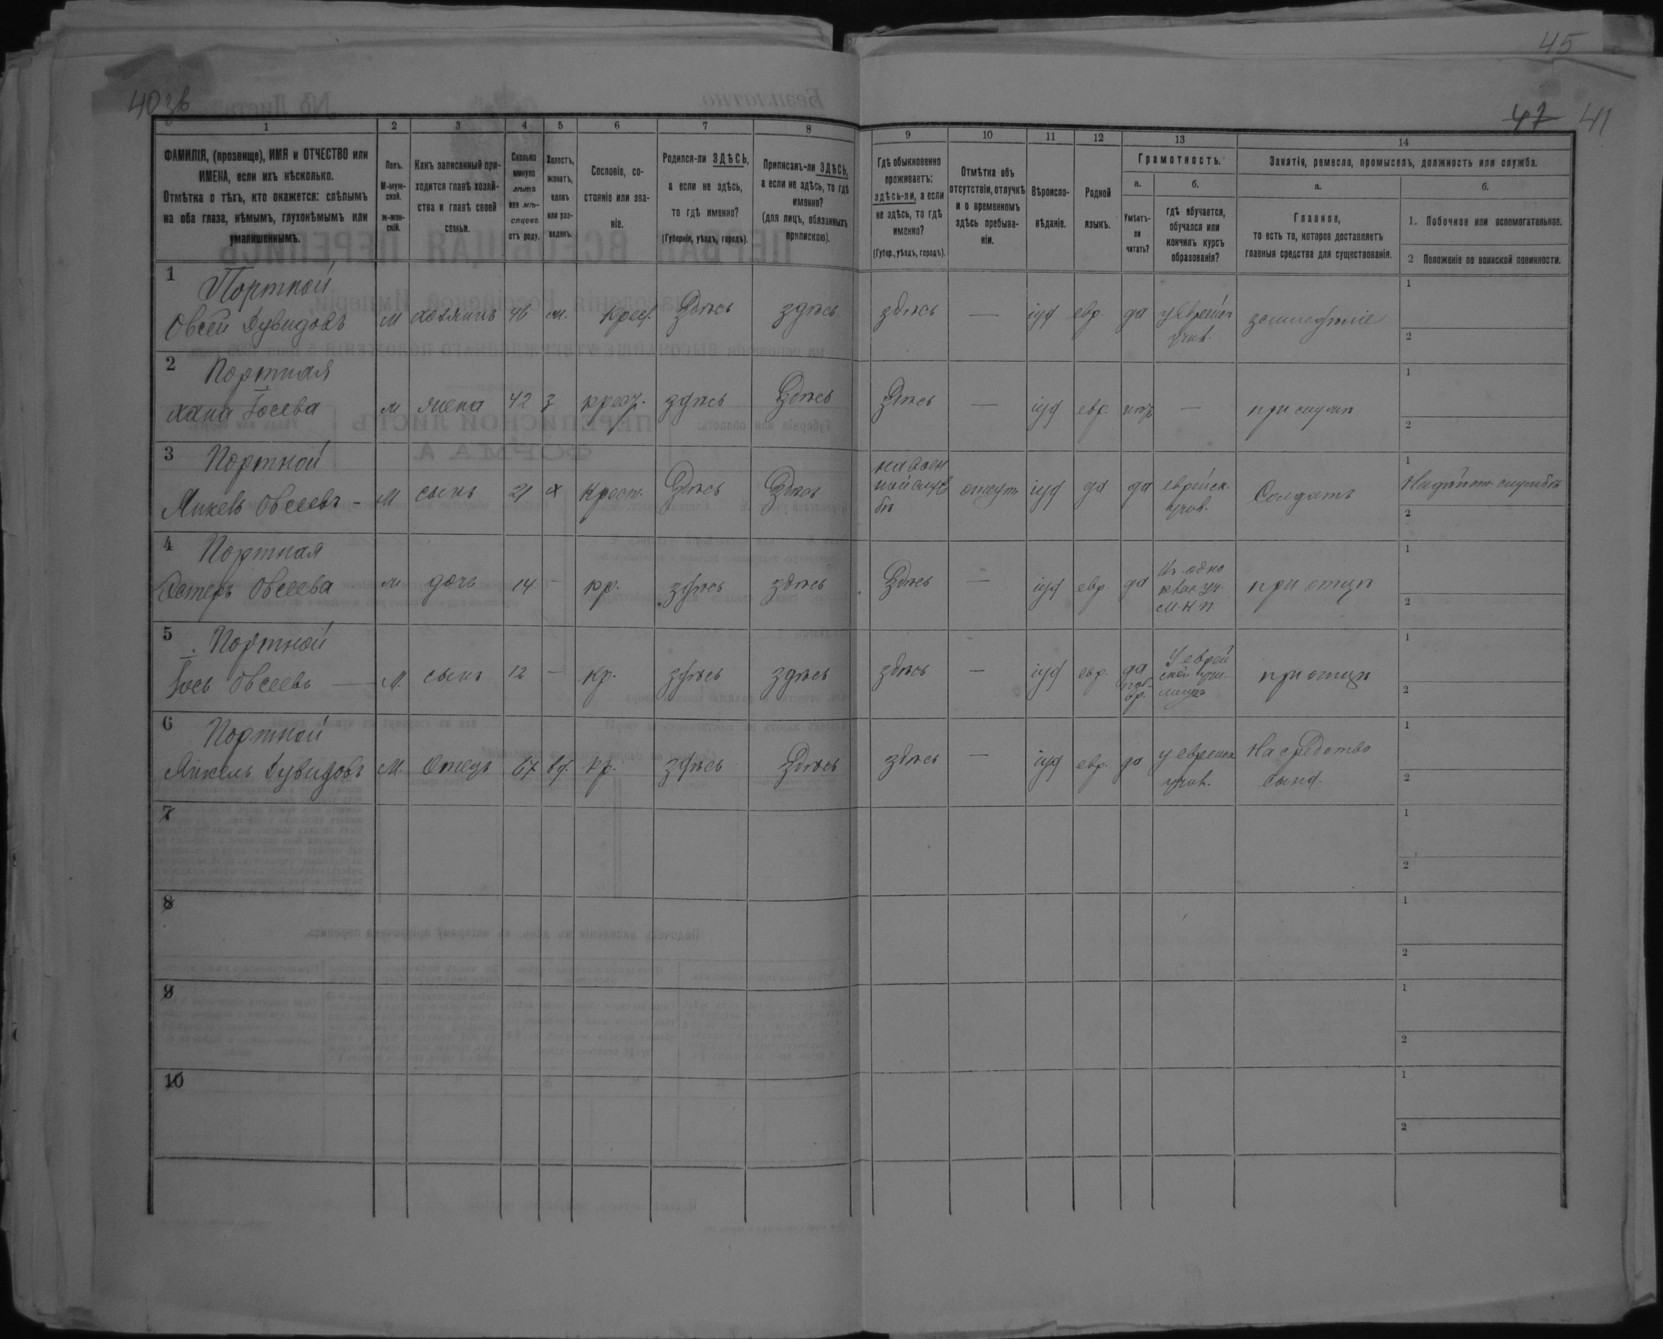 45
40 об
47 41
1 2 3 4 5 6 7 8 9 10 11 12 13 14
ФАМИЛІЯ, (прозвище), ИМЯ и ОТЧЕСТВО или
ИМЕНА, если ихъ нѣсколько.
Отмѣтка о тѣхъ, кто окажется: слѣпымъ
на оба глаза, нѣмымъ, глухонѣмымъ или
умалишеннымъ.
Полъ.
М-муж-
ской.
ж-жен-
скій.
Какъ записанный при-
ходится главѣ хозяй-
ства и главѣ своей
семьи.
Сколько
минуло
лѣтъ
или мѣ-
сяцевъ
отъ роду.
Холостъ,
женатъ,
вдовъ
или раз-
веденъ.
Сословіе, со-
стояніе или зва-
ніе.
Родился-ли ЗДѢСЬ,
а если не здѣсь,
то гдѣ именно?
(Губернія, уѣздъ, городъ).
Приписанъ-ли ЗДѢСЬ,
а если не здѣсь, то гдѣ
именно?
(для лицъ, обязанныхъ
припискою).
Гдѣ обыкновенно
проживаетъ:
здѣсь-ли, а если
не здѣсь, то гдѣ
именно?
(Губер., уѣздъ, городъ).
Отмѣтка объ
отсутствіи, отлучкѣ
и о временномъ
здѣсь пребыва-
ніи.
Вѣроиспо-
вѣданіе.
Родной
языкъ.
Грамотность.
а.
Умѣетъ-
ли
читать?
б.
гдѣ обучается,
обучался или
кончилъ курсъ
образованія?
Занятія, ремесло, промыселъ, должность или служба.
а.
Главное,
то есть то, которое доставляетъ
главныя средства для существованія.
б.
1. Побочное или вспомогательное.
2 Положеніе по воинской повинности.
1 Портной
Овсей Дувидовъ м хозяинъ 46 ж. крест. Здѣсь здѣсь здѣсь — іуд евр. да у еврейск учит. земледѣліе
1
2
2 Портная
Хана Іосева м жена 42 з крест. здѣсь Здѣсь Здѣсь — іуд евр. нѣтъ — при мужѣ
1
2
3 Портной
Овсеевъ - М сынъ 21 х крест. Здѣсь Здѣсь на воен ной служ бѣ отсут іуд да да еврейск. учит. Солдатъ
1
2
4 Портная
Эстеръ Овсеева м дочь 14 - кр. здѣсь здѣсь Здѣсь — іуд евр. да М Н П при отцѣ
1
2
5 Портной
Іось Овсеевъ — М. сынъ 12 — кр. здѣсь здѣсь здѣсь — іуд евр. да при отцѣ
1
2
6 Портной
Янкель Дувидовъ М. Отецъ 67 вд. кр. здѣсь Здѣсь здѣсь — іуд евр. да у еврейск учит. На средства сына.
1
2
7
1
2
8
1
2
9
1
2
10
1
2